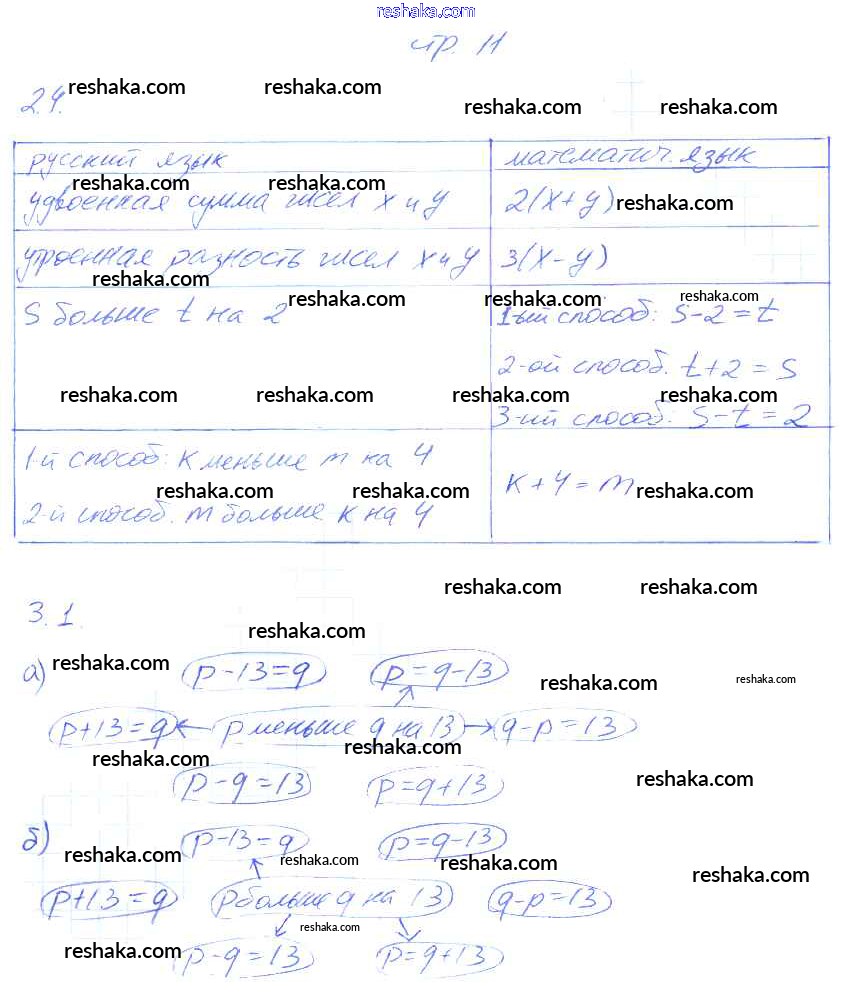 reshaka.com
стр. 11
reshaka.com reshaka.com
2.4. reshaka.com reshaka.com
русский язык математич. язык
reshaka.com reshaka.com
удвоенная сумма чисел x и y 2(x+y) reshaka.com
утроенная разность чисел x и y 3(x-y)
reshaka.com
reshaka.com reshaka.com reshaka.com
S больше t на 2 1-ый способ: S-2=t
2-ой способ. t+2=S
reshaka.com reshaka.com reshaka.com reshaka.com
3-ий способ: S-t=2
1-й способ: k меньше m на 4
reshaka.com reshaka.com k+4=m reshaka.com
2-й способ. m больше k на 4
reshaka.com reshaka.com
3.1.
reshaka.com
а) reshaka.com p-13=q p=q-13
reshaka.com reshaka.com
p+13=q p меньше q на 13 q-p=13
reshaka.com reshaka.com
p-q=13 p=q+13 reshaka.com
б) p-13=q p=q-13
reshaka.com reshaka.com reshaka.com
reshaka.com
p+13=q p больше q на 13 q-p=13
reshaka.com
reshaka.com p-q=13 p=q+13 reshaka.com